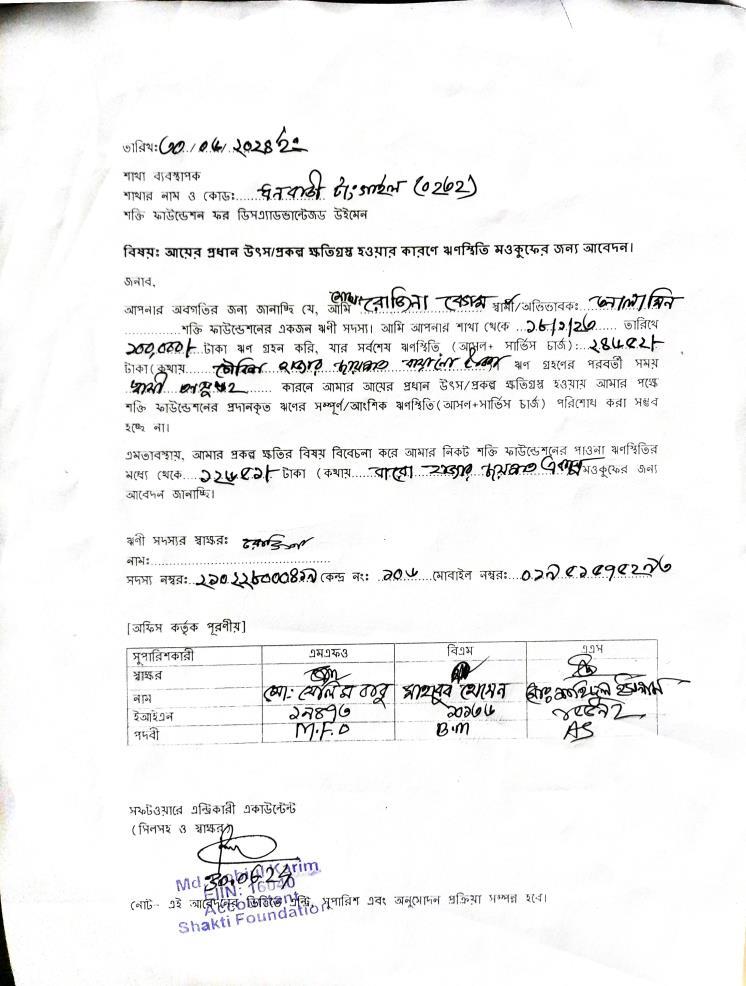 তারিখঃ ৩০/০৬/২০২৪ ইং
শাখা ব্যবস্থাপক
শাখার নাম ও কোড: ধনবাড়ী টাংগাইল (০২৫২)
শক্তি ফাউন্ডেশন ফর ডিসএ্যাডভান্টেজড উইমেন
বিষয়: আয়ের প্রধান উৎস/প্রকল্প ক্ষতিগ্রস্থ হওয়ার কারণে ঋণস্থিতি মওকুফের জন্য আবেদন।
জনাব,
আপনার অবগতির জন্য জানাচ্ছি যে, আমি রোজিনা বেগম স্বামী/অভিভাবক:
শক্তি ফাউন্ডেশনের একজন ঋণী সদস্য। আমি আপনার শাখা থেকে তারিখে
১০০,০০০/- টাকা ঋণ গ্রহন করি, যার সর্বশেষ ঋণস্থিতি (আসল+ সার্ভিস চার্জ):
টাকা(কথায় হাজার ছয়শত টাকা ঋণ গ্রহণের পরবর্তী সময়
স্বামী অসুস্থ কারনে আমার আয়ের প্রধান উৎস/প্রকল্প ক্ষতিগ্রস্থ হওয়ায় আমার পক্ষে
শক্তি ফাউন্ডেশনের প্রদানকৃত ঋণের সম্পূর্ণ/আংশিক ঋণস্থিতি(আসল+সার্ভিস চার্জ) পরিশোধ করা সম্ভব
হচ্ছে না।
এমতাবস্থায়, আমার প্রকল্প ক্ষতির বিষয় বিবেচনা করে আমার নিকট শক্তি ফাউন্ডেশনের পাওনা ঋণস্থিতির
মধ্যে থেকে টাকা (কথায় বারো হাজার ছয়শত মওকুফের জন্য
আবেদন জানাচ্ছি।
ঋণী সদস্যর স্বাক্ষরঃ রোজিনা
নাম:
সদস্য নম্বরঃ কেন্দ্র নং: ১০৬ মোবাইল নম্বরঃ
[অফিস কর্তৃক পূরণীয়]
সুপারিশকারী এমএফও বিএম এএস
স্বাক্ষর
নাম মো: সেলিম বাবু মাহবুব হোসেন
ইআইএন
পদবী M.F.O B.M AS
সফটওয়ারে এন্ট্রিকারী একাউন্টেন্ট
(সিলসহ ও স্বাক্ষর)
Md. Karim
30.06.24
EIIN: 16040
Accountant
Shakti Foundation
নোট- এই আবেদনের ভিত্তিতে এন্ট্রি, সুপারিশ এবং অনুমোদন প্রক্রিয়া সম্পন্ন হবে।